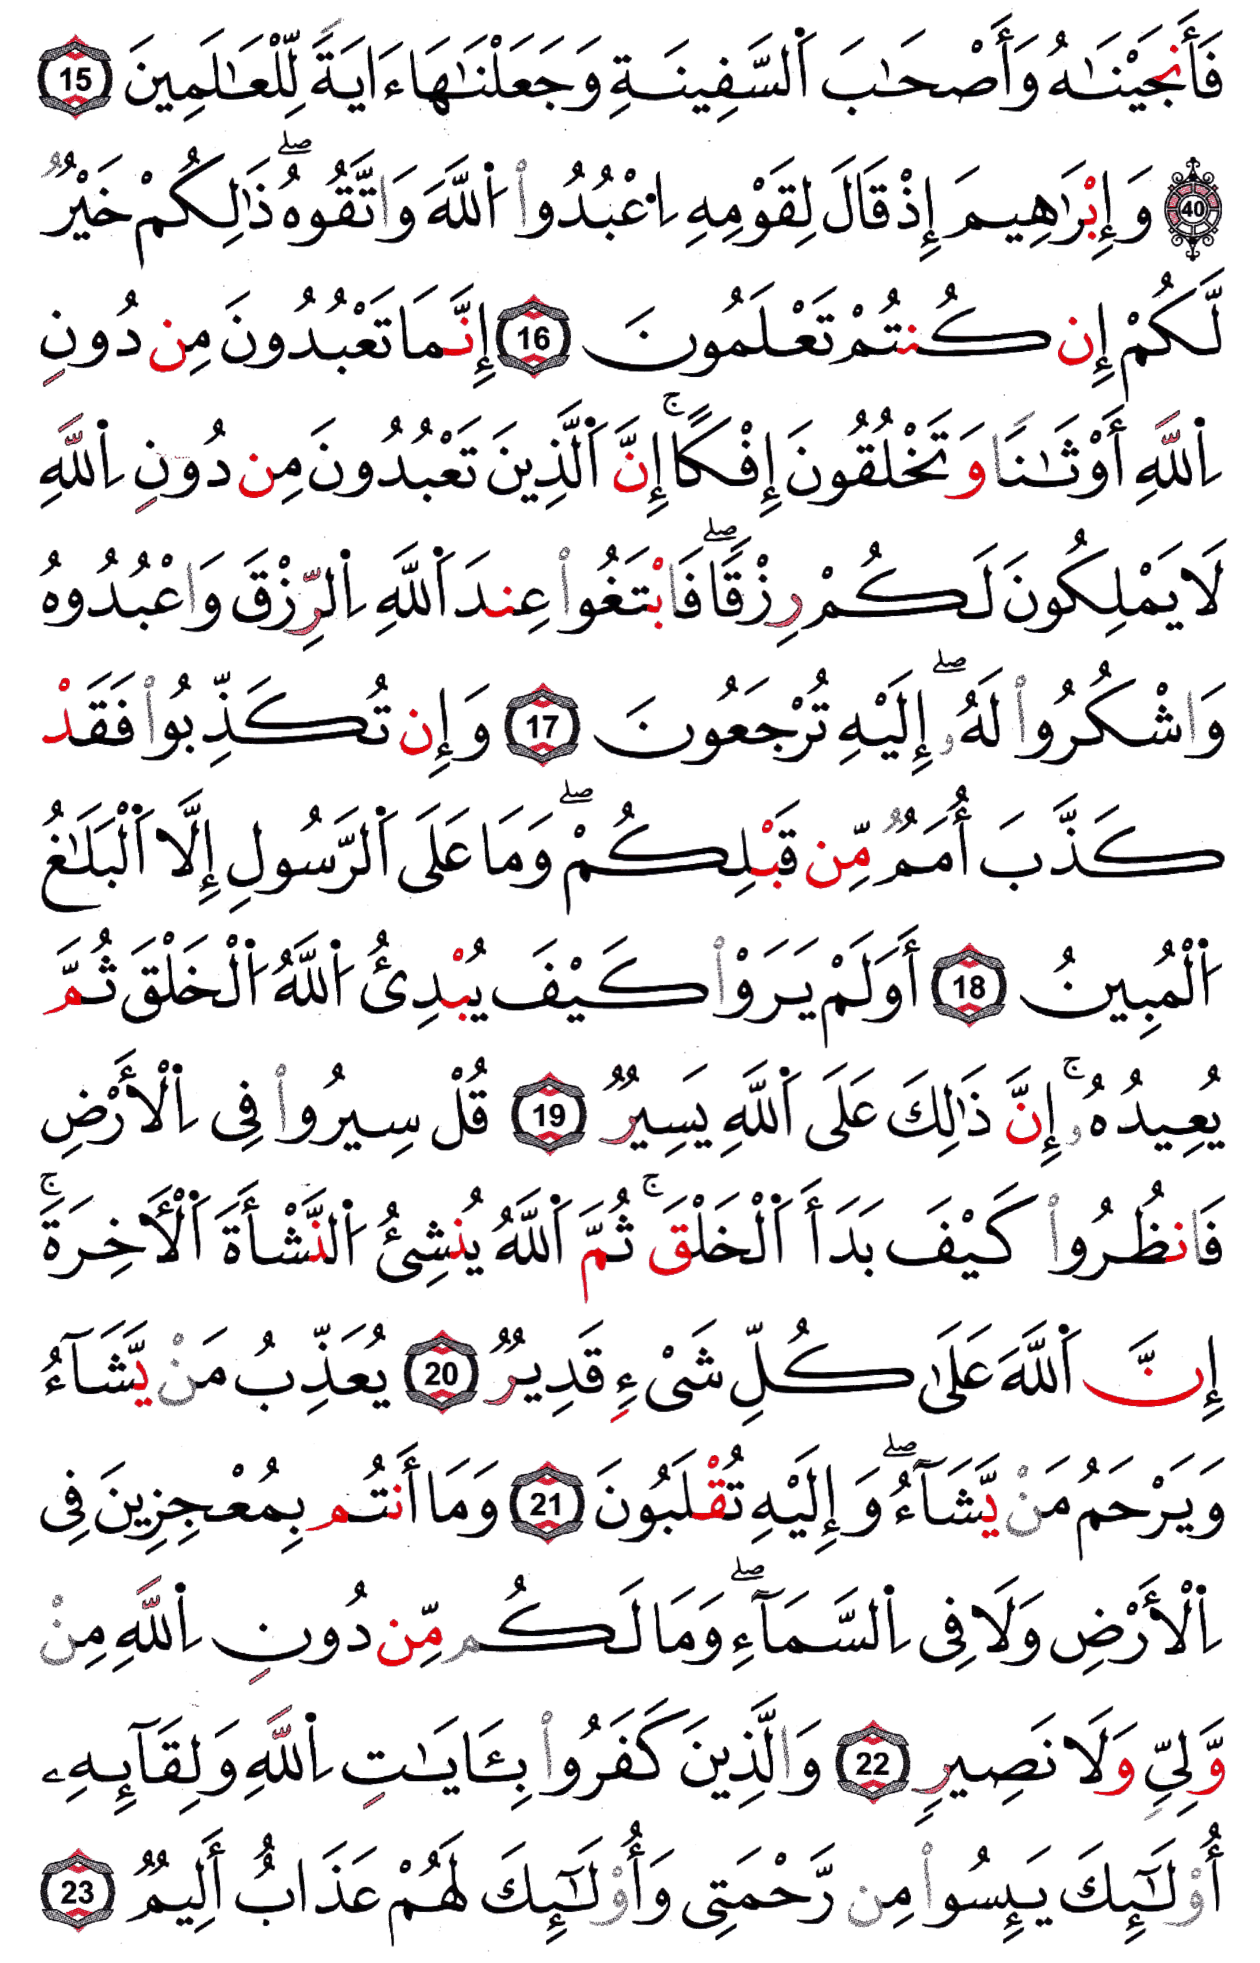 فَأَنجَيْنَٰهُ وَأَصْحَٰبَ اَ۬لسَّفِينَةِ وَجَعَلْنَٰهَا ءَايَةً لِّلْعَٰلَمِينَ 15
40 وَإِبْرَٰهِيمَ إِذْ قَالَ لِقَوْمِهِ اِ۟عْبُدُواْ اُ۬للَّهَ وَاتَّقُوهُ ۖ ذَٰلِكُمْ خَيْرٌ
لَّكُمْ إِن كُنتُمْ تَعْلَمُونَ 16 إِنَّمَا تَعْبُدُونَ مِن دُونِ
اِ۬للَّهِ أَوْثَٰنًا وَتَخْلُقُونَ إِفْكًا ۚ إِنَّ اَ۬لَّذِينَ تَعْبُدُونَ مِن دُونِ اِ۬للَّهِ
لَا يَمْلِكُونَ لَكُمْ رِزْقًا ۖ فَابْتَغُواْ عِندَ اَ۬للَّهِ اِ۬لرِّزْقَ وَاعْبُدُوهُ
وَاشْكُرُواْ لَهُۥ ۖ إِلَيْهِ تُرْجَعُونَ 17 وَإِن تُكَذِّبُواْ فَقَدْ
كَذَّبَ أُمَمٌ مِّن قَبْلِكُمْ ۖ وَمَا عَلَى اَ۬لرَّسُولِ إِلَّا اَ۬لْبَلَٰغُ
اُ۬لْمُبِينُ 18 أَوَلَمْ يَرَوْاْ كَيْفَ يُبْدِئُ اُ۬للَّهُ اُ۬لْخَلْقَ ثُمَّ
يُعِيدُهُۥ ۚ إِنَّ ذَٰلِكَ عَلَى اَ۬للَّهِ يَسِيرٌ 19 قُلْ سِيرُواْ فِى اِ۬لْأَرْضِ
فَانظُرُواْ كَيْفَ بَدَأَ اَ۬لْخَلْقَ ۚ ثُمَّ اَ۬للَّهُ يُنشِئُ اُ۬لنَّشْأَةَ اَ۬لْأَخِرَةَ ۚ
إِنَّ اَ۬للَّهَ عَلَىٰ كُلِّ شَىْءٍ قَدِيرٌ 20 يُعَذِّبُ مَنْ يَّشَآءُ
وَيَرْحَمُ مَنْ يَّشَآءُ ۖ وَإِلَيْهِ تُقْلَبُونَ 21 وَمَا أَنتُم بِمُعْجِزِينَ فِى
اِ۬لْأَرْضِ وَلَا فِى اِ۬لسَّمَآءِ ۖ وَمَا لَكُم مِّن دُونِ اِ۬للَّهِ مِنْ
وَّلِىٍّ وَلَا نَصِيرٍ 22 وَالَّذِينَ كَفَرُواْ بِـَٔايَٰتِ اِ۬للَّهِ وَلِقَآئِهِۦ
أُوْلَٰٓئِكَ يَئِسُواْ مِن رَّحْمَتِى وَأُوْلَٰٓئِكَ لَهُمْ عَذَابٌ أَلِيمٌ 23